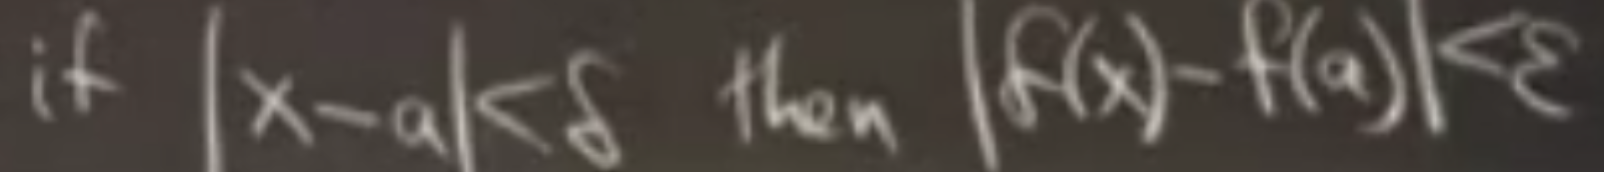 if |x-a|<δ then |f(x)-f(a)|<ε